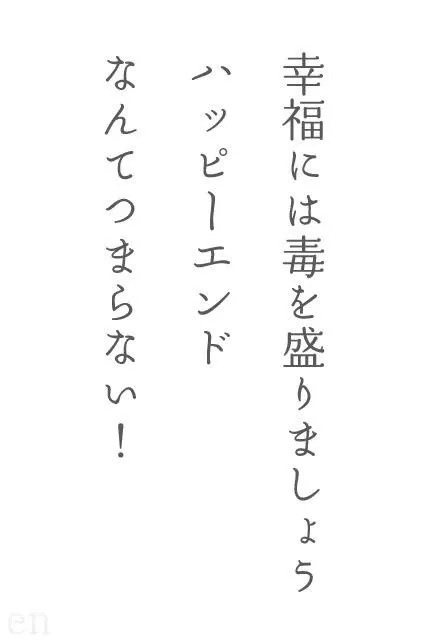 幸福には毒を盛りましょう
ハッピーエンド
なんてつまらない！
en